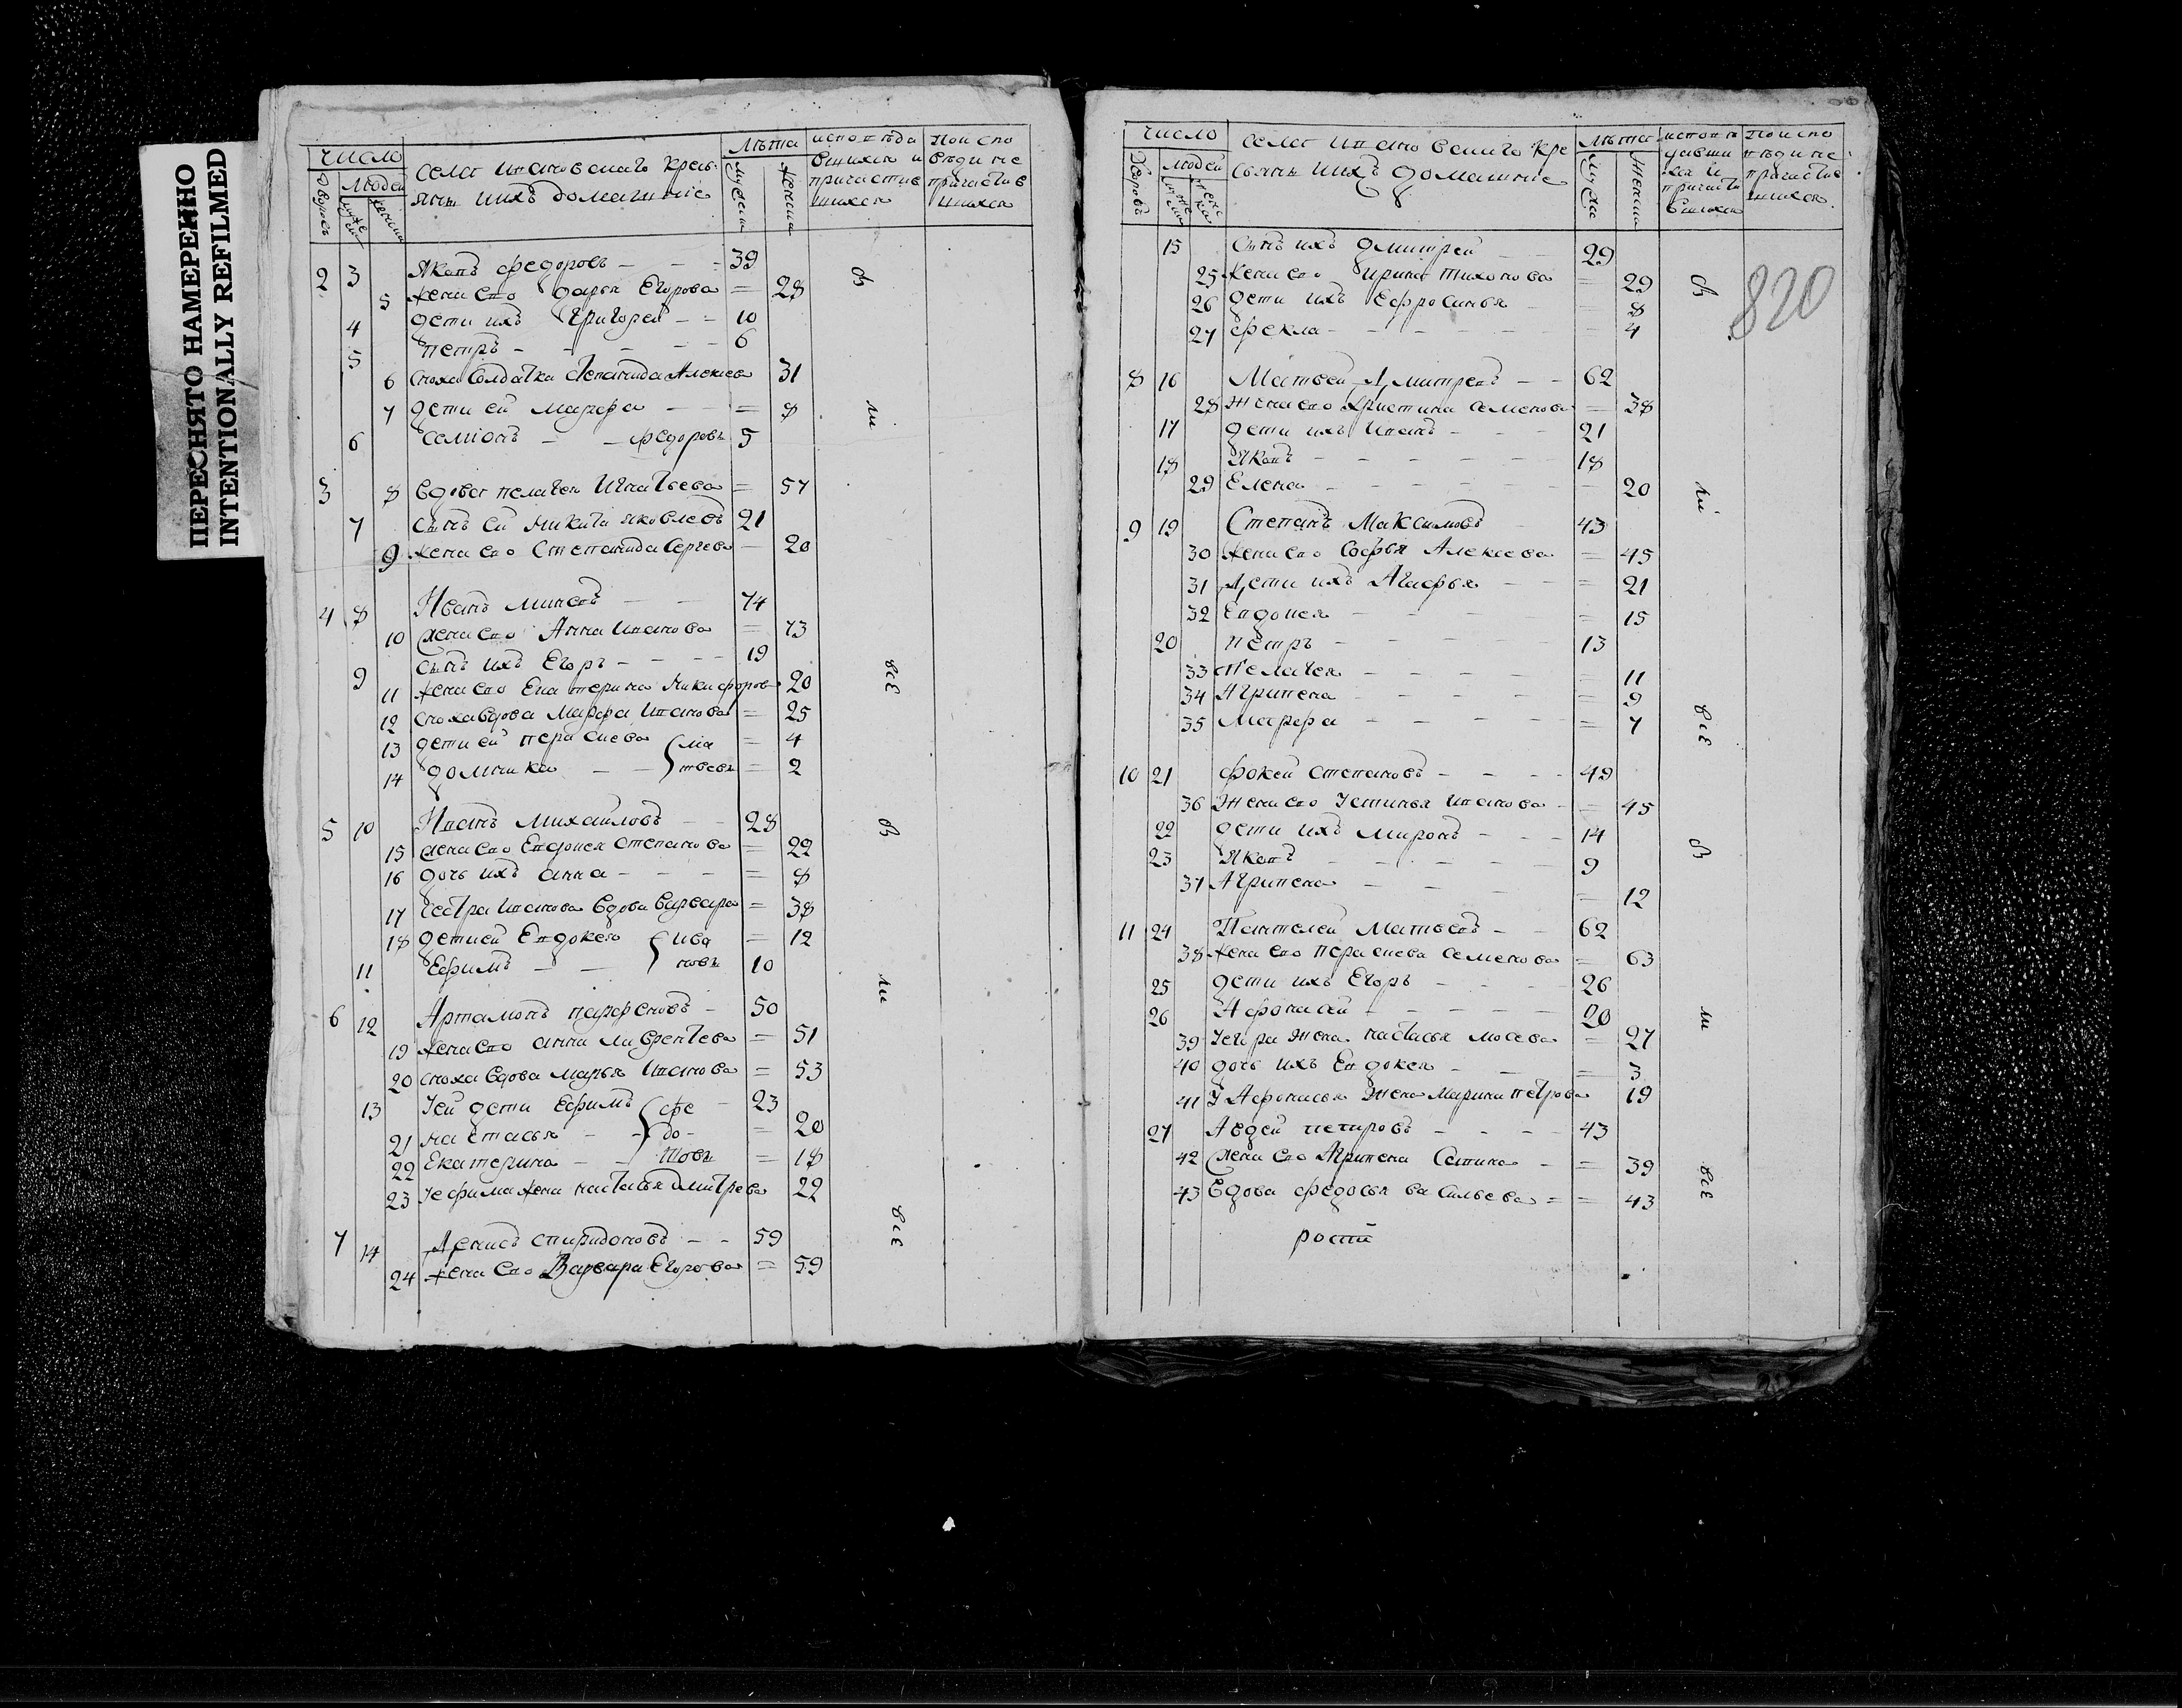 ПЕРЕСНЯТО НАМЕРЕННО
INTENTIONALLY REFILMED
число Села Ивановскаго крест Лѣта исповѣда Поиспо
Людей янъ ихъ домашніе вшихся и вѣди не
дворовъ мужеска женска мужска женска причастив причастив
шихся шихся
2 3 Яковъ Федоровъ 39
5 жена его Дарья Егорова 28
4 дети ихъ Григорей 10
5 Петръ 6
6 сноха Солдатка Степанида Алексева 31
7 дети ей Марфа 8
6 Семіонъ Федоровъ 5
3 8 Вдова Пелагея Игнатьева 57
7 сынъ ей Микита Яковлевъ 21
9 жена его Степанида Сергева 20
4 8 Иванъ Минаевъ 74
10 жена его Анна Иванова 73
9 сынъ ихъ Егоръ 19
11 жена его Екатерина Никифорова 20
12 сноха вдова Марфа Иванова 25
13 дети ей Пераскева Ма 4
14 Домника твевы 2
5 10 Иванъ Михаиловъ 28
15 жена его Евдокея Степанова 22
16 дочь ихъ Анна 8
17 сестра Иванова вдова Варвара 38
18 дети ей Евдокея Ива 12
11 Ефимъ новы 10
6 12 Артамонъ Парфеновъ 50
19 жена его Анна Лаврентева 51
20 сноха вдова Марья Иванова 53
13 У ей дети Ефимъ Фе 23
21 Настасья до 20
22 Екатерина товы 18
23 У Ефима жена Настасья Дмитрева 22
7 14 Денисъ Спиридоновъ 59
24 жена его Варвара Егорова 59
В
ли
всѣ
В
ли
всѣ
число Села Ивановскаго кре Лѣта исповѣ Поиспо
Людей стьянъ ихъ домашніе давши вѣди не
дворовъ мужеска женска мужска женска хся и причастив
причасти шихся
вшихся
820
15 сынъ ихъ Дмитрей 29
25 жена его Ирина Тихонова 29
26 дети ихъ Ефросинья 8
27 Фекла 4
8 16 Матвей Дмитревъ 62
28 жена его Христина Семенова 38
17 дети ихъ Иванъ 21
18 Яковъ 18
29 Елена 20
9 19 Степанъ Максимовъ 43
30 жена его Софья Алексева 45
31 дети ихъ Агафья 21
32 Евдокея 15
20 Петръ 13
33 Пелагея 11
34 Агрипена 9
35 Марфа 7
10 21 Фокей Степановъ 49
36 жена его Устинья Иванова 45
22 дети ихъ Миронъ 14
23 Яковъ 9
37 Агрипена 12
11 24 Пантелей Матвевъ 62
38 жена его Пераскева Семенова 63
25 дети ихъ Егоръ 26
26 Афонасей 20
39 У Егора жена Настасья Мосева 27
40 дочь ихъ Евдокея 3
41 У Афонасья жена Марина Петрова 19
27 Авдей Петровъ 43
42 жена его Агрипена 39
43 Вдова Федосья Васильева 43
В
ли
всѣ
В
ли
всѣ